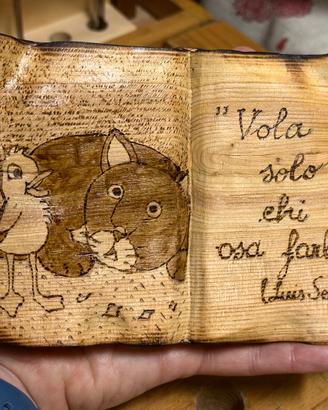 "Vola
solo
chi
osa farl
(Luis Se